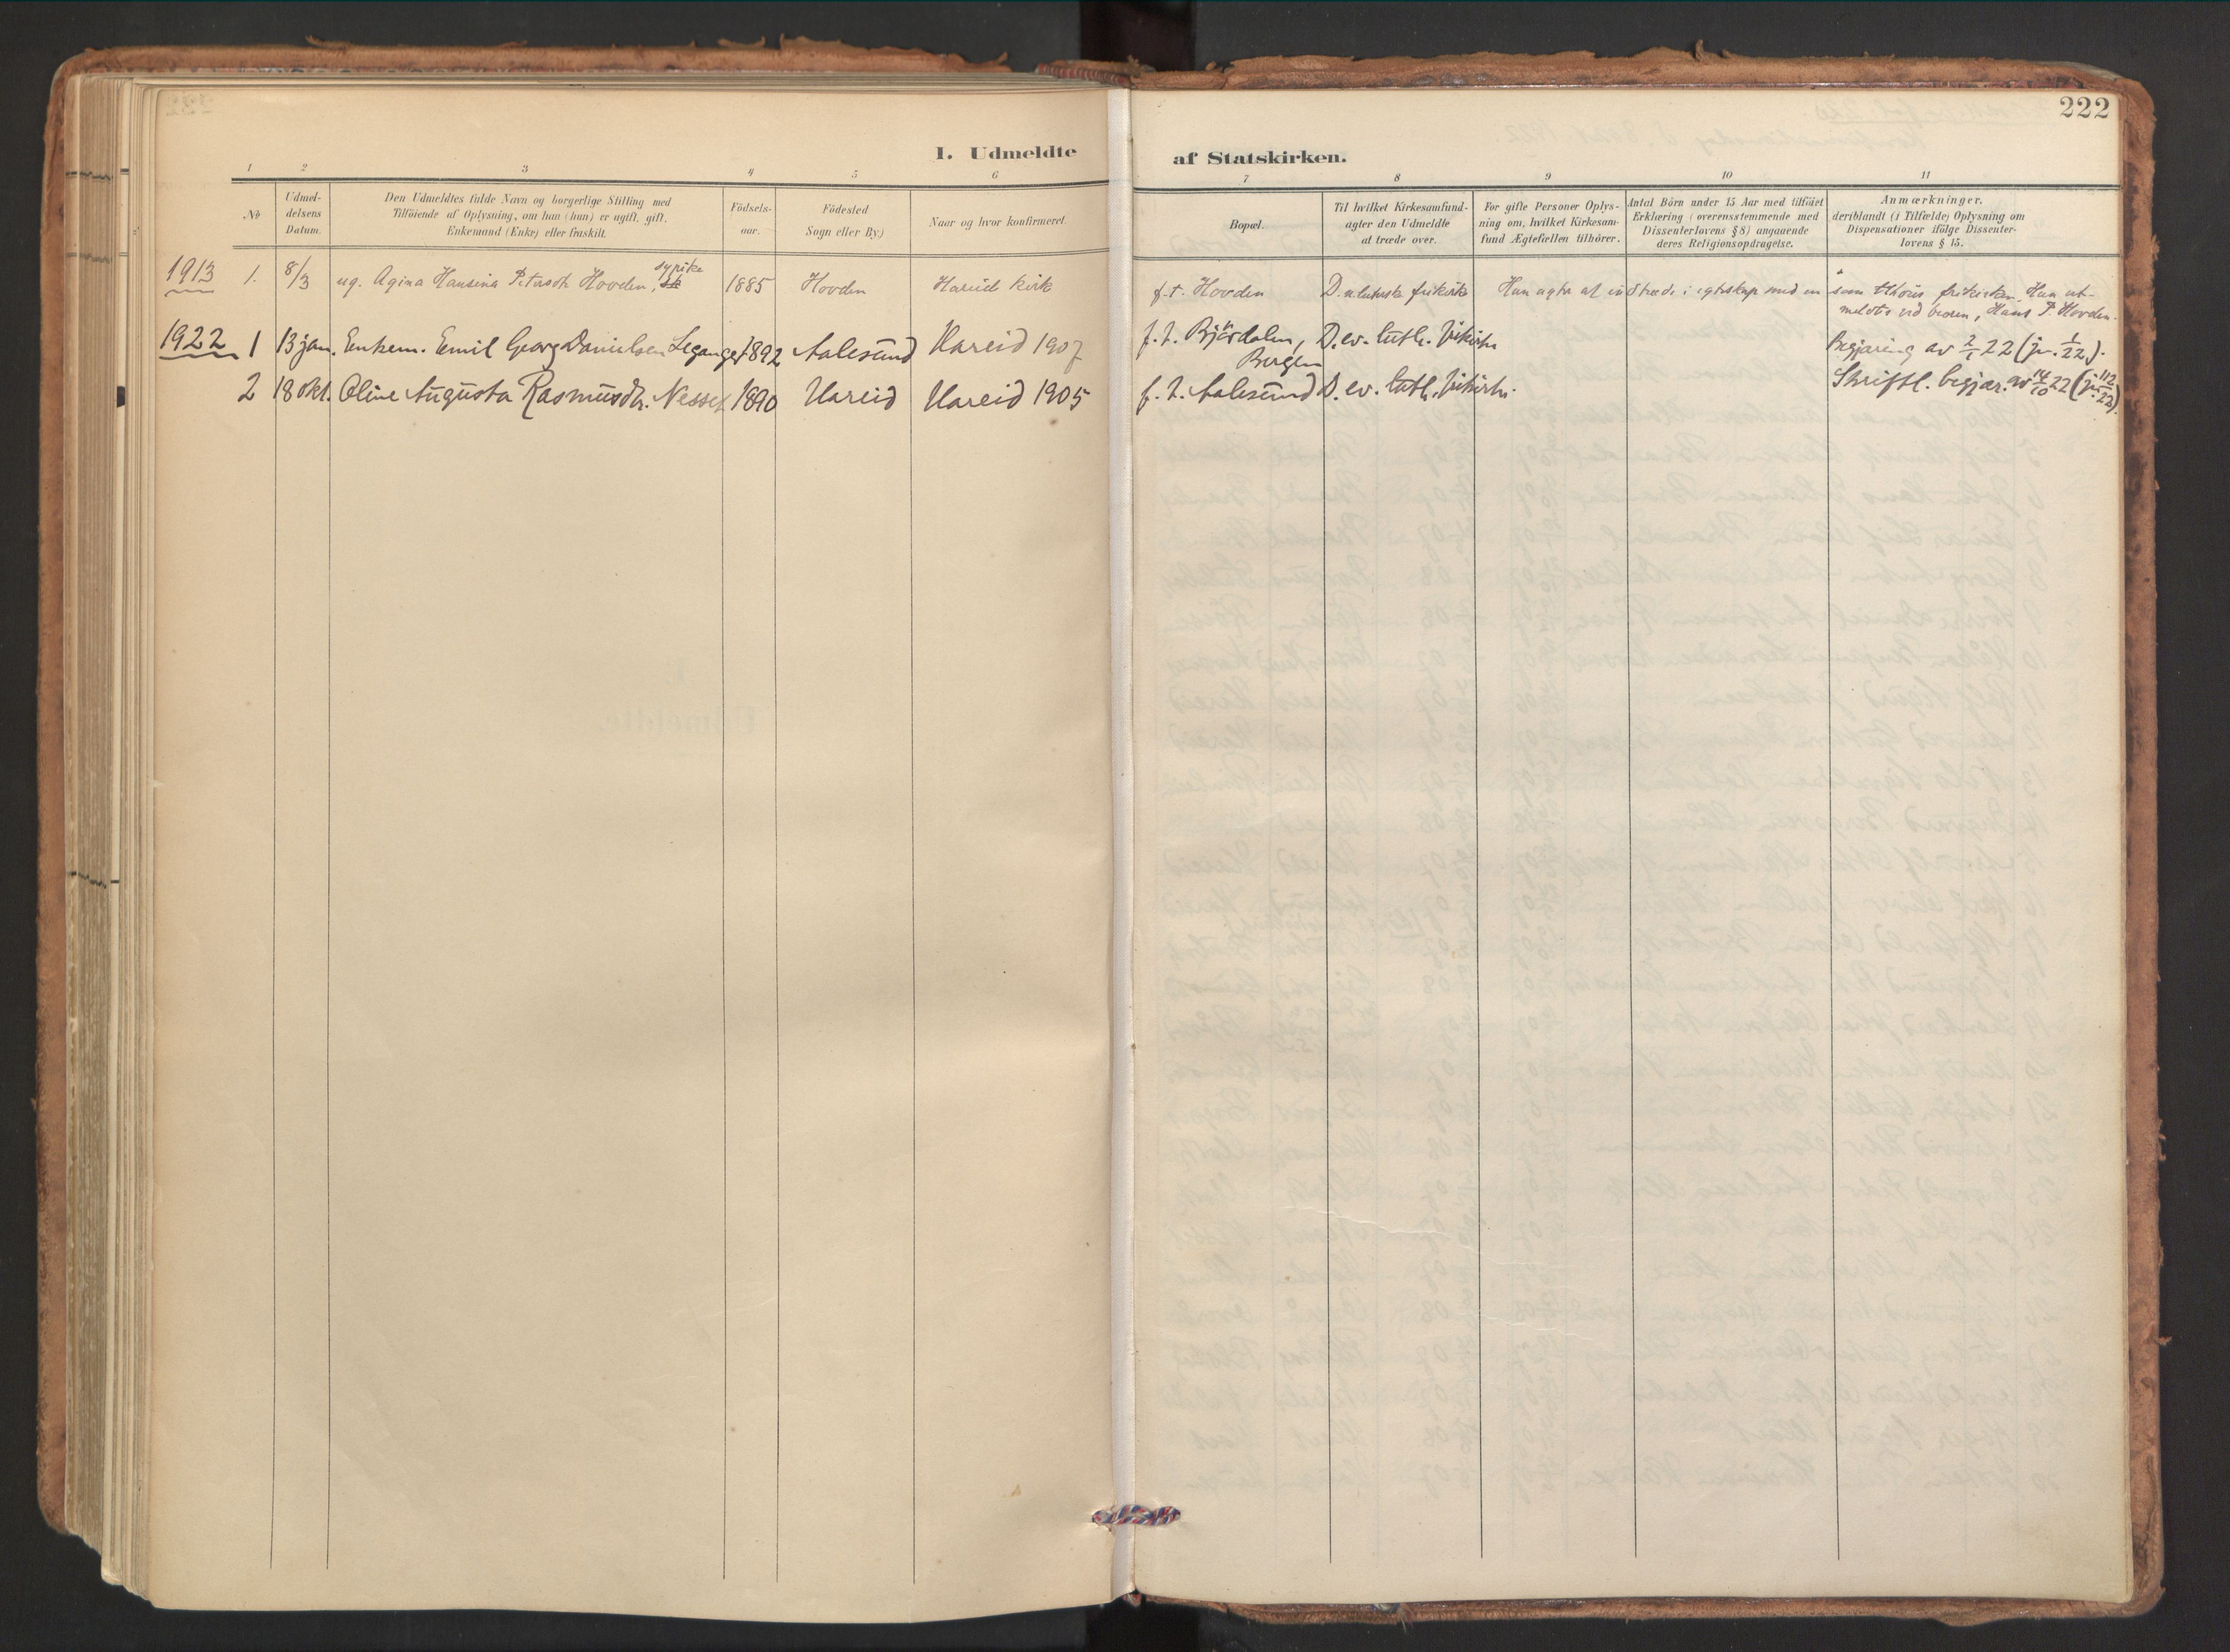 222
1. Udmeldte af Statskirken.
1 2 3 4 5 6 7 8 9 10 11
№
Udmel-
delsens
Datum.
Den Udmeldtes fulde Navn og borgerlige Stilling med
Tilföiende af Oplysning, om han (hun) er ugift, gift,
Enkemand (Enke) eller fraskilt.
Födsels-
aar.
Födested
Sogn eller By.)
Naar og hvor konfirmeret.
Bopæl.
Til hvilket Kirkesamfund
agter den Udmeldte
at træde over.
For gifte Personer Oplys-
ning om, hvilket Kirkesam-
fund Ægtefællen tilhörer.
Antal Börn under 15 Aar med tilföiet
Erklæring (overensstemmende med
Dissenterlovens § 8) angaaende
deres Religionsopdragelse.
Anmærkninger,
deriblandt (i Tilfælde) Oplysning om
Dispensationer ifölge Dissenter-
lovens § 15.
1913 1. 8/3 ug. Agina Hansina Petersdtr Hovden, sypike 1885 Hovden Hareid kirk f.t. Hovden D. e. luterske frikirke Hun agter at indtræde i egteskap med en som tilhörer frikirken. Hun ut-
meldtes ved broren, Hans P. Hovden.
1922 1 13 jan. Enkem. Emil Georg Danielsen Leganger 1892 Aalesund Hareid 1907 f. t. Björdalen, D. ev. luth. frikirke Begjæring av 2/1 22 (jr. 1/22).
Bergen
2 18 okt. Oline Augusta Rasmusdtr. Nesset 1890 Hareid Hareid 1905 f. t. Aalesund D. ev. luth. frikirke. Skriftl. begjær. av 14/10 22 (jr. 112/22).